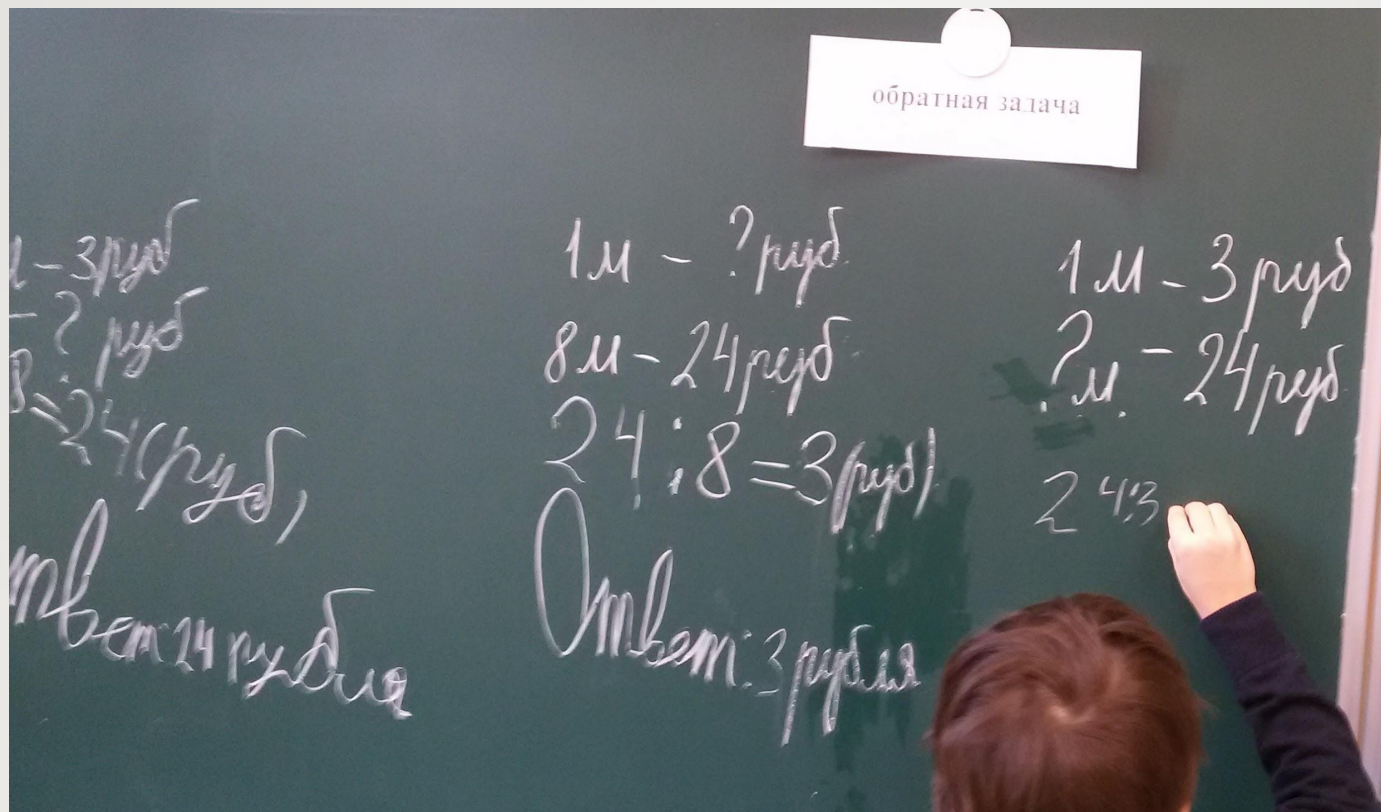 обратная задача
м - 3 руб
- ? руб
8 = 24 (руб)
твет: 24 рубля
1 м - ? руб.
8 м - 24 руб.
24 : 8 = 3 (руб).
Ответ: 3 рубля
1 м - 3 руб
? м. - 24 руб.
24:3